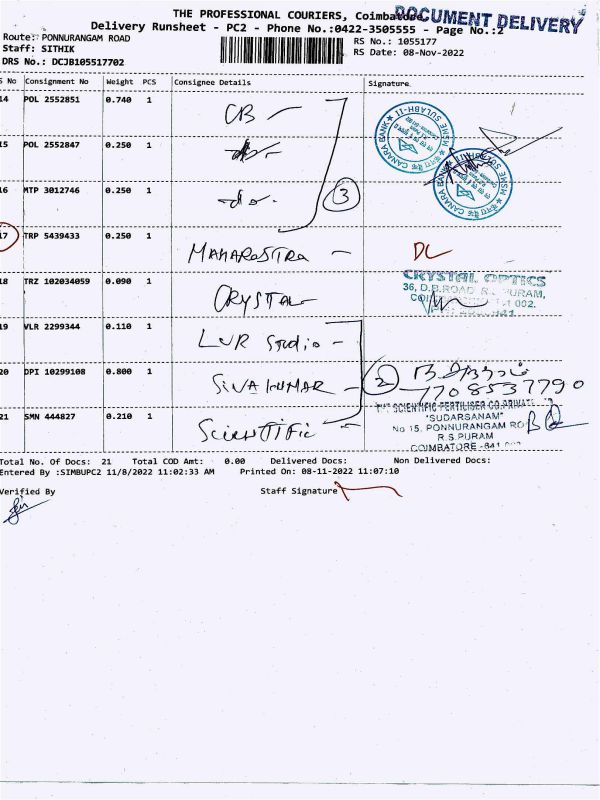 THE PROFESSIONAL COURIERS, Coimbatore
DOCUMENT DELIVERY
Delivery Runsheet - PC2 - Phone No.:0422-3505555 - Page No.:2
Route: PONNURANGAM ROAD
RS No.: 1055177
Staff: SITHIK
RS Date: 08-Nov-2022
DRS No.: DCJB105517702
S No Consignment No Weight PCS Consignee Details Signature
14 POL 2552851 0.740 1 CB
15 POL 2552847 0.250 1 do
16 MTP 3012746 0.250 1 do
3
CANARA BANK SME SULABH-II
CANARA BANK
17 TRP 5439433 0.250 1 MAHARASTRA DL
18 TRZ 102034059 0.090 1 CRYSTAL
CRYSTAL OPTICS
36, D.B.ROAD R.S.PURAM,
19 VLR 2299344 0.110 1 LUR Studio
20 DPI 10299108 0.800 1 SIVAKUMAR
2
7708537790
21 SMN 444827 0.210 1 Scientific
THE SCIENTIFIC FERTILISER CO.PRIVATE
"SUDARSANAM"
No 15, PONNURANGAM RO
R.S.PURAM
COIMBATORE -641 002
Total No. Of Docs: 21 Total COD Amt: 0.00 Delivered Docs: Non Delivered Docs:
Entered By :SIMBUPC2 11/8/2022 11:02:33 AM Printed On: 08-11-2022 11:07:10
Verified By Staff Signature